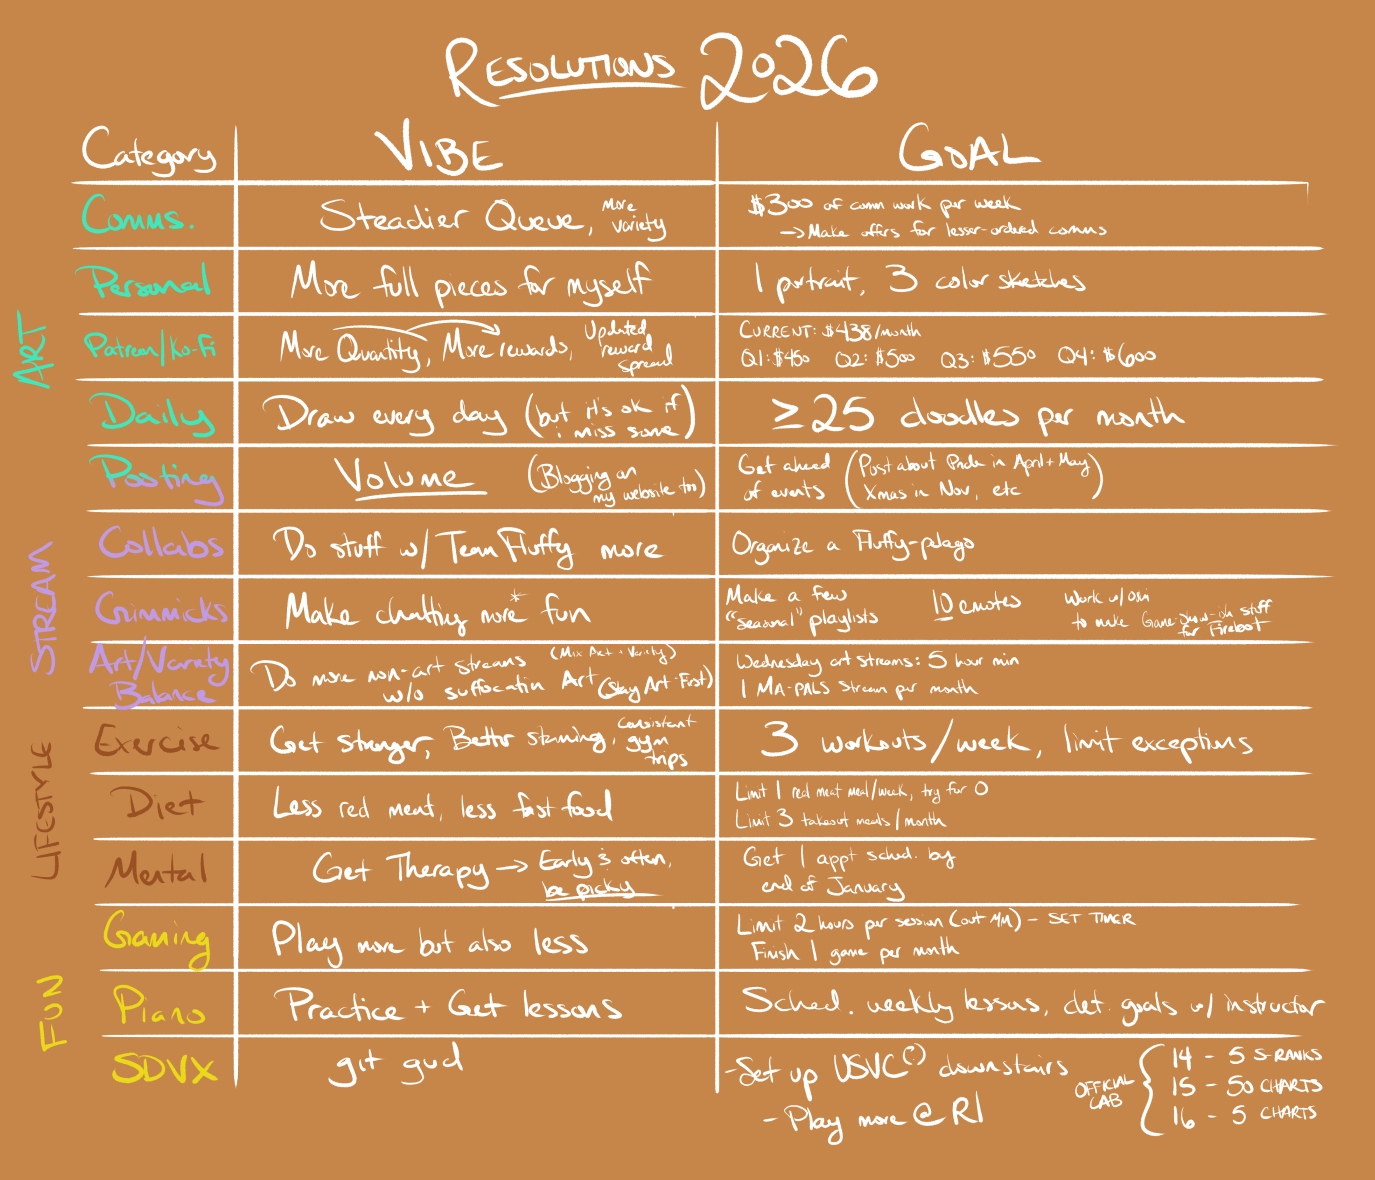 RESOLUTIONS 2026
Category VIBE GOAL
ART
Comms. Steadier Queue, more variety
$300 of comm work per week
→ Make offers for lesser-ordered comms
Personal More full pieces for myself 1 portrait, 3 color sketches
Patreon/Ko-Fi More Quantity, More rewards, Updated reward spread
CURRENT: $438/month
Q1: $450 Q2: $500 Q3: $550 Q4: $600
Daily Draw every day (but it's ok if i miss some) ≥25 doodles per month
Posting Volume (Blogging on my website too)
Get ahead of events (Post about Pride in April + May, Xmas in Nov, etc)
STREAM
Collabs Do stuff w/ Team Fluffy more Organize a Fluffy-pelago
Gimmicks Make chatting more* fun
Make a few "seasonal" playlists
10 emotes
Work w/ Osm to make Game-Show-ish stuff for Firebot
Art/Variety Balance Do more non-art streams w/o suffocatin Art (Mix Art + Variety) (Stay Art-First)
Wednesday art streams: 5 hour min
1 MA-PALS Stream per month
LIFESTYLE
Exercise Get stronger, Better stamina, consistant gym trips 3 workouts/week, limit exceptions
Diet Less red meat, less fast food
Limit 1 red meat meal/week, try for 0
Limit 3 takeout meals/month
Mental Get Therapy → Early & often, be picky
Get 1 appt sched. by
end of January
FUN
Gaming Play more but also less
Limit 2 hours per session – SET TIMER
Finish 1 game per month
Piano Practice + Get lessons Sched. weekly lessons, det. goals w/ instructor
SDVX git gud
-Set up USVC(?) downstairs
- Play more @ R1
OFFICIAL CAB
14 - 5 S-RANKS
15 - 50 CHARTS
16 - 5 CHARTS